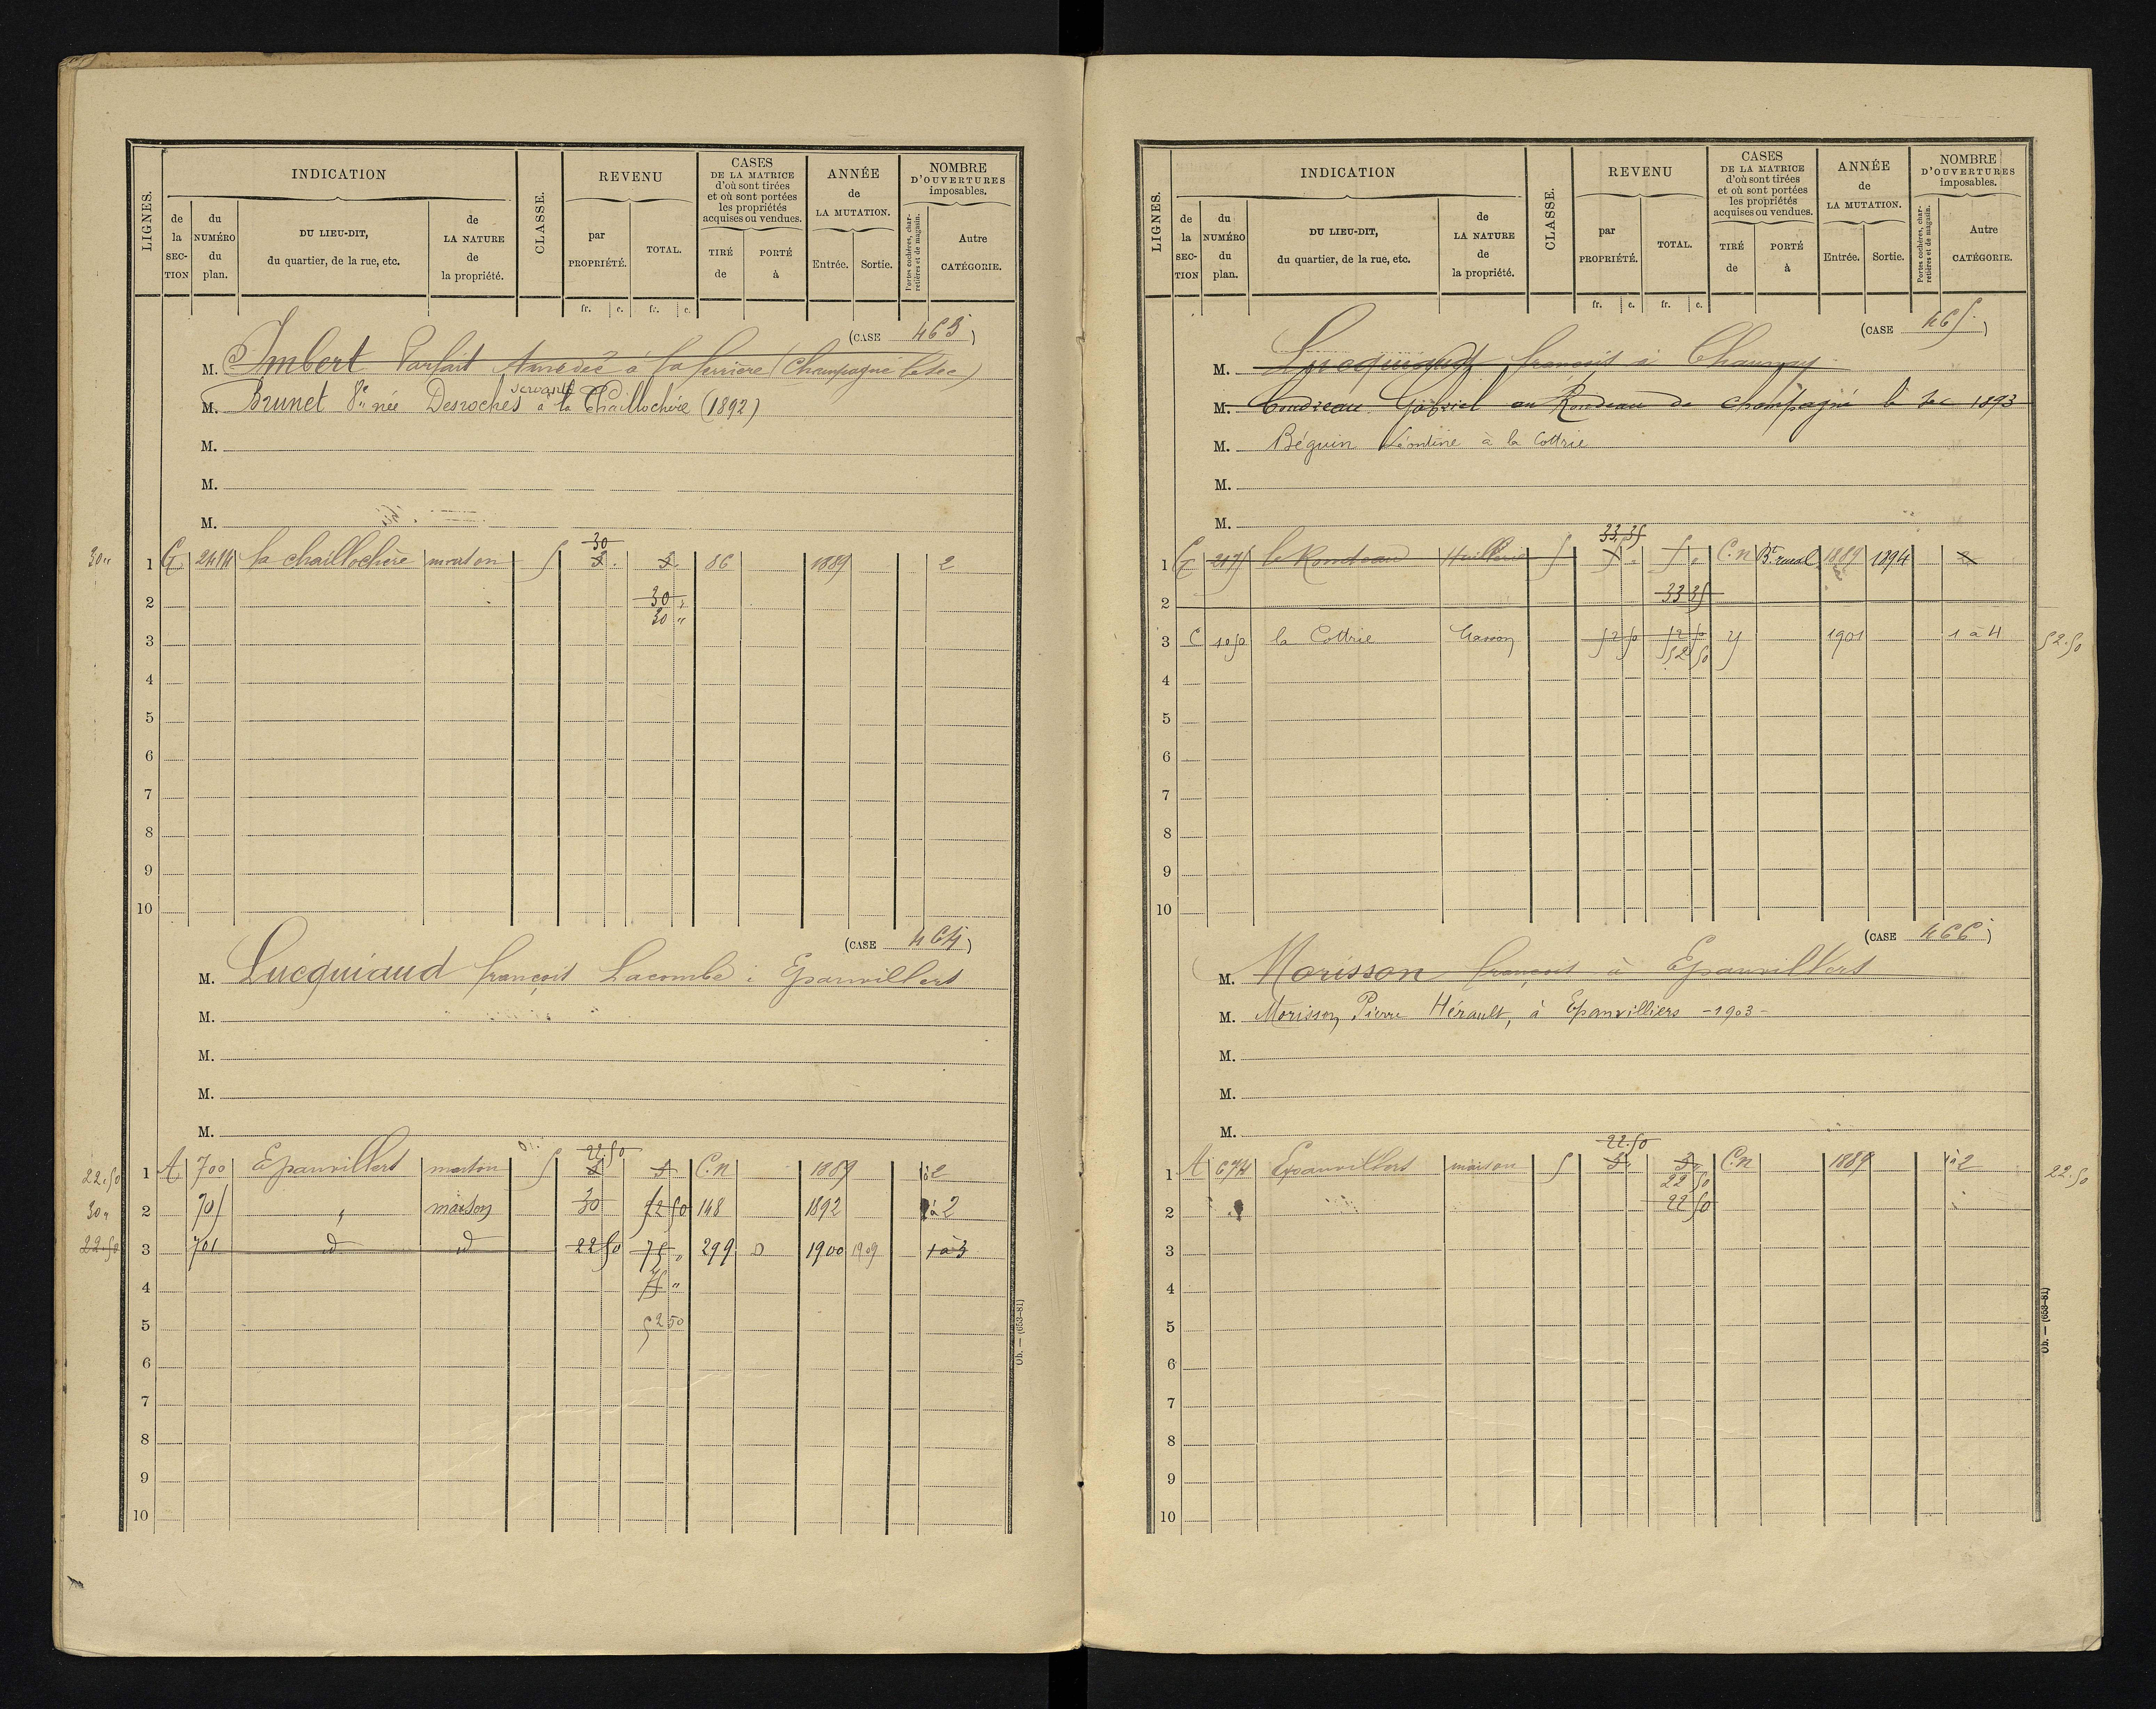 LIGNES.
INDICATION
CLASSE.
REVENU
CASES
DE LA MATRICE
d'où sont tirées
et où sont portées
les propriétés
acquises ou vendues.
ANNÉE
de
LA MUTATION.
NOMBRE
D'OUVERTURES
imposables.
de la SEC-TION
du NUMÉRO du plan.
DU LIEU-DIT,
du quartier, de la rue, etc.
de LA NATURE de la propriété.
par PROPRIÉTÉ.
TOTAL.
TIRÉ de
PORTÉ à
Entrée.
Sortie.
Portes cochères, charretières et de magasin.
Autre CATÉGORIE.
fr. c. fr. c.
(CASE 463)
M. Imbert Parfait Amedée à la ferrière (Champagné le sec)
servante
M. Brunet Vve née Desroches à la Chaillochère (1892)
M.
M.
M.
30
30 " 1 G 2414 la chaillochère maison 5 5 . 5. 86 1889 2
2 30 "
30 "
3
4
5
6
7
8
9
10
(CASE 464)
M. Lucquiaud françois Lacombe à Epanvillers
M.
M.
M.
M.
22.50
22.50 1 A 700 Epanvillers maison 5 5 5 C.n 1889 1à2
30 " 2 701 " maison 30 52 50 148 1892 1à2
22.50 3 701 d° d° 22 50 75 " 299 D 1900 1909 1 à 3
4 75 "
5 52 50
6
7
8
9
10
Ob. — (653-81)
LIGNES.
INDICATION
CLASSE.
REVENU
CASES
DE LA MATRICE
d'où sont tirées
et où sont portées
les propriétés
acquises ou vendues.
ANNÉE
de
LA MUTATION.
NOMBRE
D'OUVERTURES
imposables.
de la SEC-TION
du NUMÉRO du plan.
DU LIEU-DIT,
du quartier, de la rue, etc.
de LA NATURE de la propriété.
par PROPRIÉTÉ.
TOTAL.
TIRÉ de
PORTÉ à
Entrée.
Sortie.
Portes cochères, charretières et de magasin.
Autre CATÉGORIE.
fr. c. fr. c.
(CASE 465)
M. Lucquiaud françois à Chaunay
M. Gabriel au Rondeau de champagné le sec 1893
M. Béguin Léontine à la Cottrie
M.
M.
33,35
1 G 217 le Rondeau Huillerie 5 5 " 5 " C.n Bt. rural 1889 1894 2
2 33 35
3 C 1050 la Cottrie Maison 52 50 52 50 1901 1 à 4 52.50
52 50
4
5
6
7
8
9
10
(CASE 466)
M. Morisson françois à Epanvillers
M. Morisson, Pierre Hérault, à Epanvilliers - 1903 -
M.
M.
M.
22.50
1 A 674 Epanvillers maison 5 5. 5. C.n 1889 1à2 22.50
22 50
2 22 50
3
4
5
6
7
8
9
10
Ob. — (653-81)